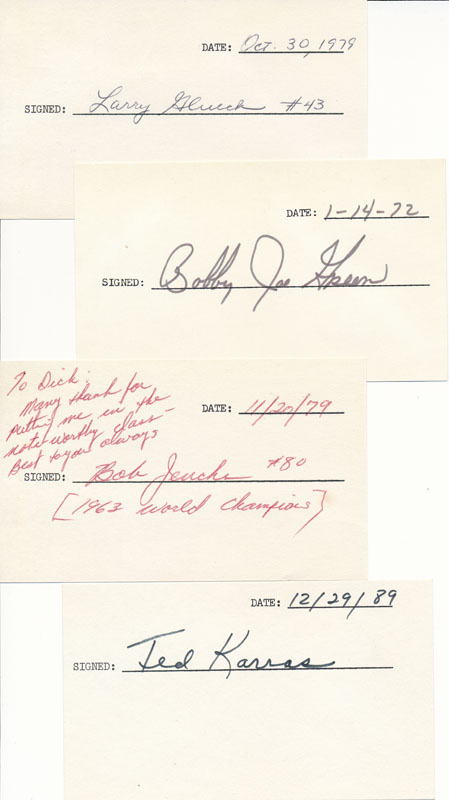 DATE: Oct. 30, 1979
SIGNED: Larry Glueck #43
DATE: 1-14-72
SIGNED: Bobby Joe Green
To Dick:
Many thank for
putting me in the
noteworthy class -
Best to you always
DATE: 11/20/79
SIGNED: Bob Jencks #80
[1963 World Champions]
DATE: 12/29/89
SIGNED: Ted Karras